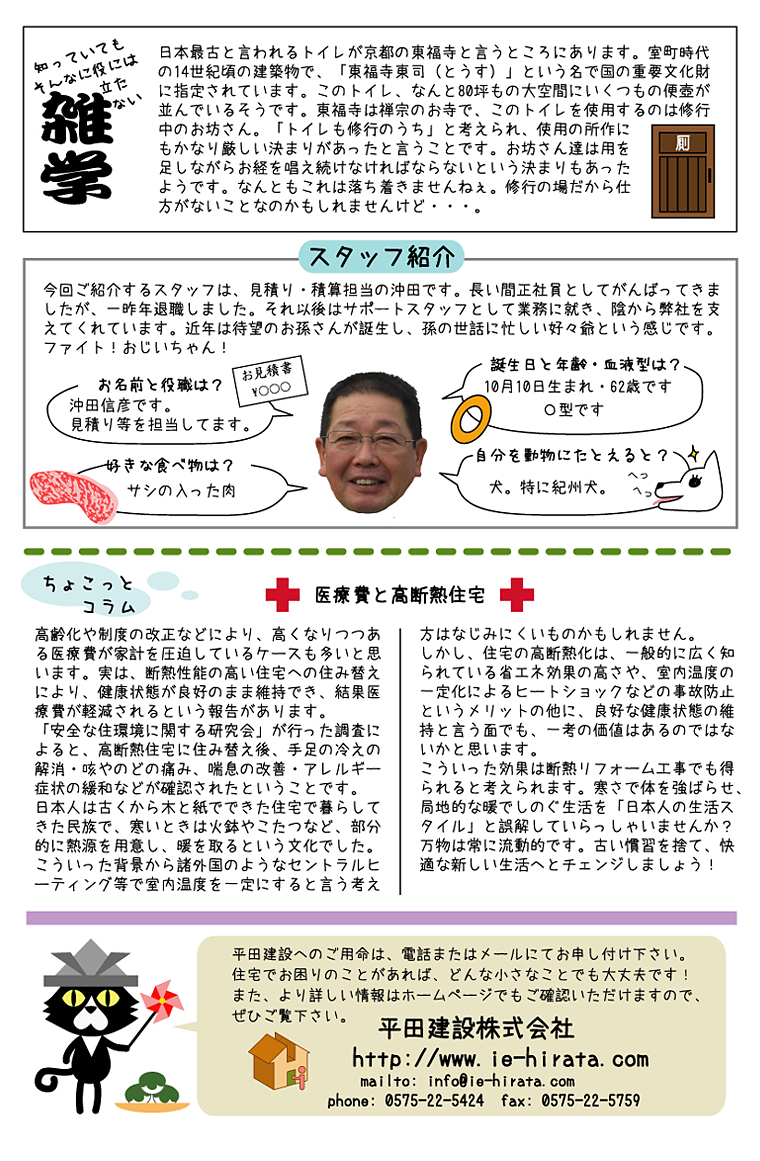 知っていても
そんなに役には
立た
ない
雑学
日本最古と言われるトイレが京都の東福寺と言うところにあります。室町時代
の14世紀頃の建築物で、「東福寺東司（とうす）」という名で国の重要文化財
に指定されています。このトイレ、なんと80坪もの大空間にいくつもの便壺が
並んでいるそうです。東福寺は禅宗のお寺で、このトイレを使用するのは修行
中のお坊さん。「トイレも修行のうち」と考えられ、使用の所作に
もかなり厳しい決まりがあったと言うことです。お坊さん達は用を
足しながらお経を唱え続けなければならないという決まりもあった
ようです。なんともこれは落ち着きませんねぇ。修行の場だから仕
方がないことなのかもしれませんけど・・・。
厠
スタッフ紹介
今回ご紹介するスタッフは、見積り・積算担当の沖田です。長い間正社員としてがんばってきま
したが、一昨年退職しました。それ以後はサポートスタッフとして業務に就き、陰から弊社を支
えてくれています。近年は待望のお孫さんが誕生し、孫の世話に忙しい好々爺という感じです。
ファイト！おじいちゃん！
お名前と役職は？
沖田信彦です。
見積り等を担当してます。
お見積書
¥○○○
誕生日と年齢・血液型は？
10月10日生まれ・62歳です
○型です
好きな食べ物は？
サシの入った肉
自分を動物にたとえると？
犬。特に紀州犬。
へっ
へっ
ちょこっと
コラム
医療費と高断熱住宅
高齢化や制度の改正などにより、高くなりつつあ
る医療費が家計を圧迫しているケースも多いと思
います。実は、断熱性能の高い住宅への住み替え
により、健康状態が良好のまま維持でき、結果医
療費が軽減されるという報告があります。
「安全な住環境に関する研究会」が行った調査に
よると、高断熱住宅に住み替え後、手足の冷えの
解消・咳やのどの痛み、喘息の改善・アレルギー
症状の緩和などが確認されたということです。
日本人は古くから木と紙でできた住宅で暮らして
きた民族で、寒いときは火鉢やこたつなど、部分
的に熱源を用意し、暖を取るという文化でした。
こういった背景から諸外国のようなセントラルヒ
ーティング等で室内温度を一定にすると言う考え
方はなじみにくいものかもしれません。
しかし、住宅の高断熱化は、一般的に広く知
られている省エネ効果の高さや、室内温度の
一定化によるヒートショックなどの事故防止
というメリットの他に、良好な健康状態の維
持と言う面でも、一考の価値はあるのではな
いかと思います。
こういった効果は断熱リフォーム工事でも得
られると考えられます。寒さで体を強ばらせ、
局地的な暖でしのぐ生活を「日本人の生活ス
タイル」と誤解していらっしゃいませんか？
万物は常に流動的です。古い慣習を捨て、快
適な新しい生活へとチェンジしましょう！
平田建設へのご用命は、電話またはメールにてお申し付け下さい。
住宅でお困りのことがあれば、どんな小さなことでも大丈夫です！
また、より詳しい情報はホームページでもご確認いただけますので、
ぜひご覧下さい。
平田建設株式会社
http://www.ie-hirata.com
mailto: info@ie-hirata.com
phone: 0575-22-5424 fax: 0575-22-5759